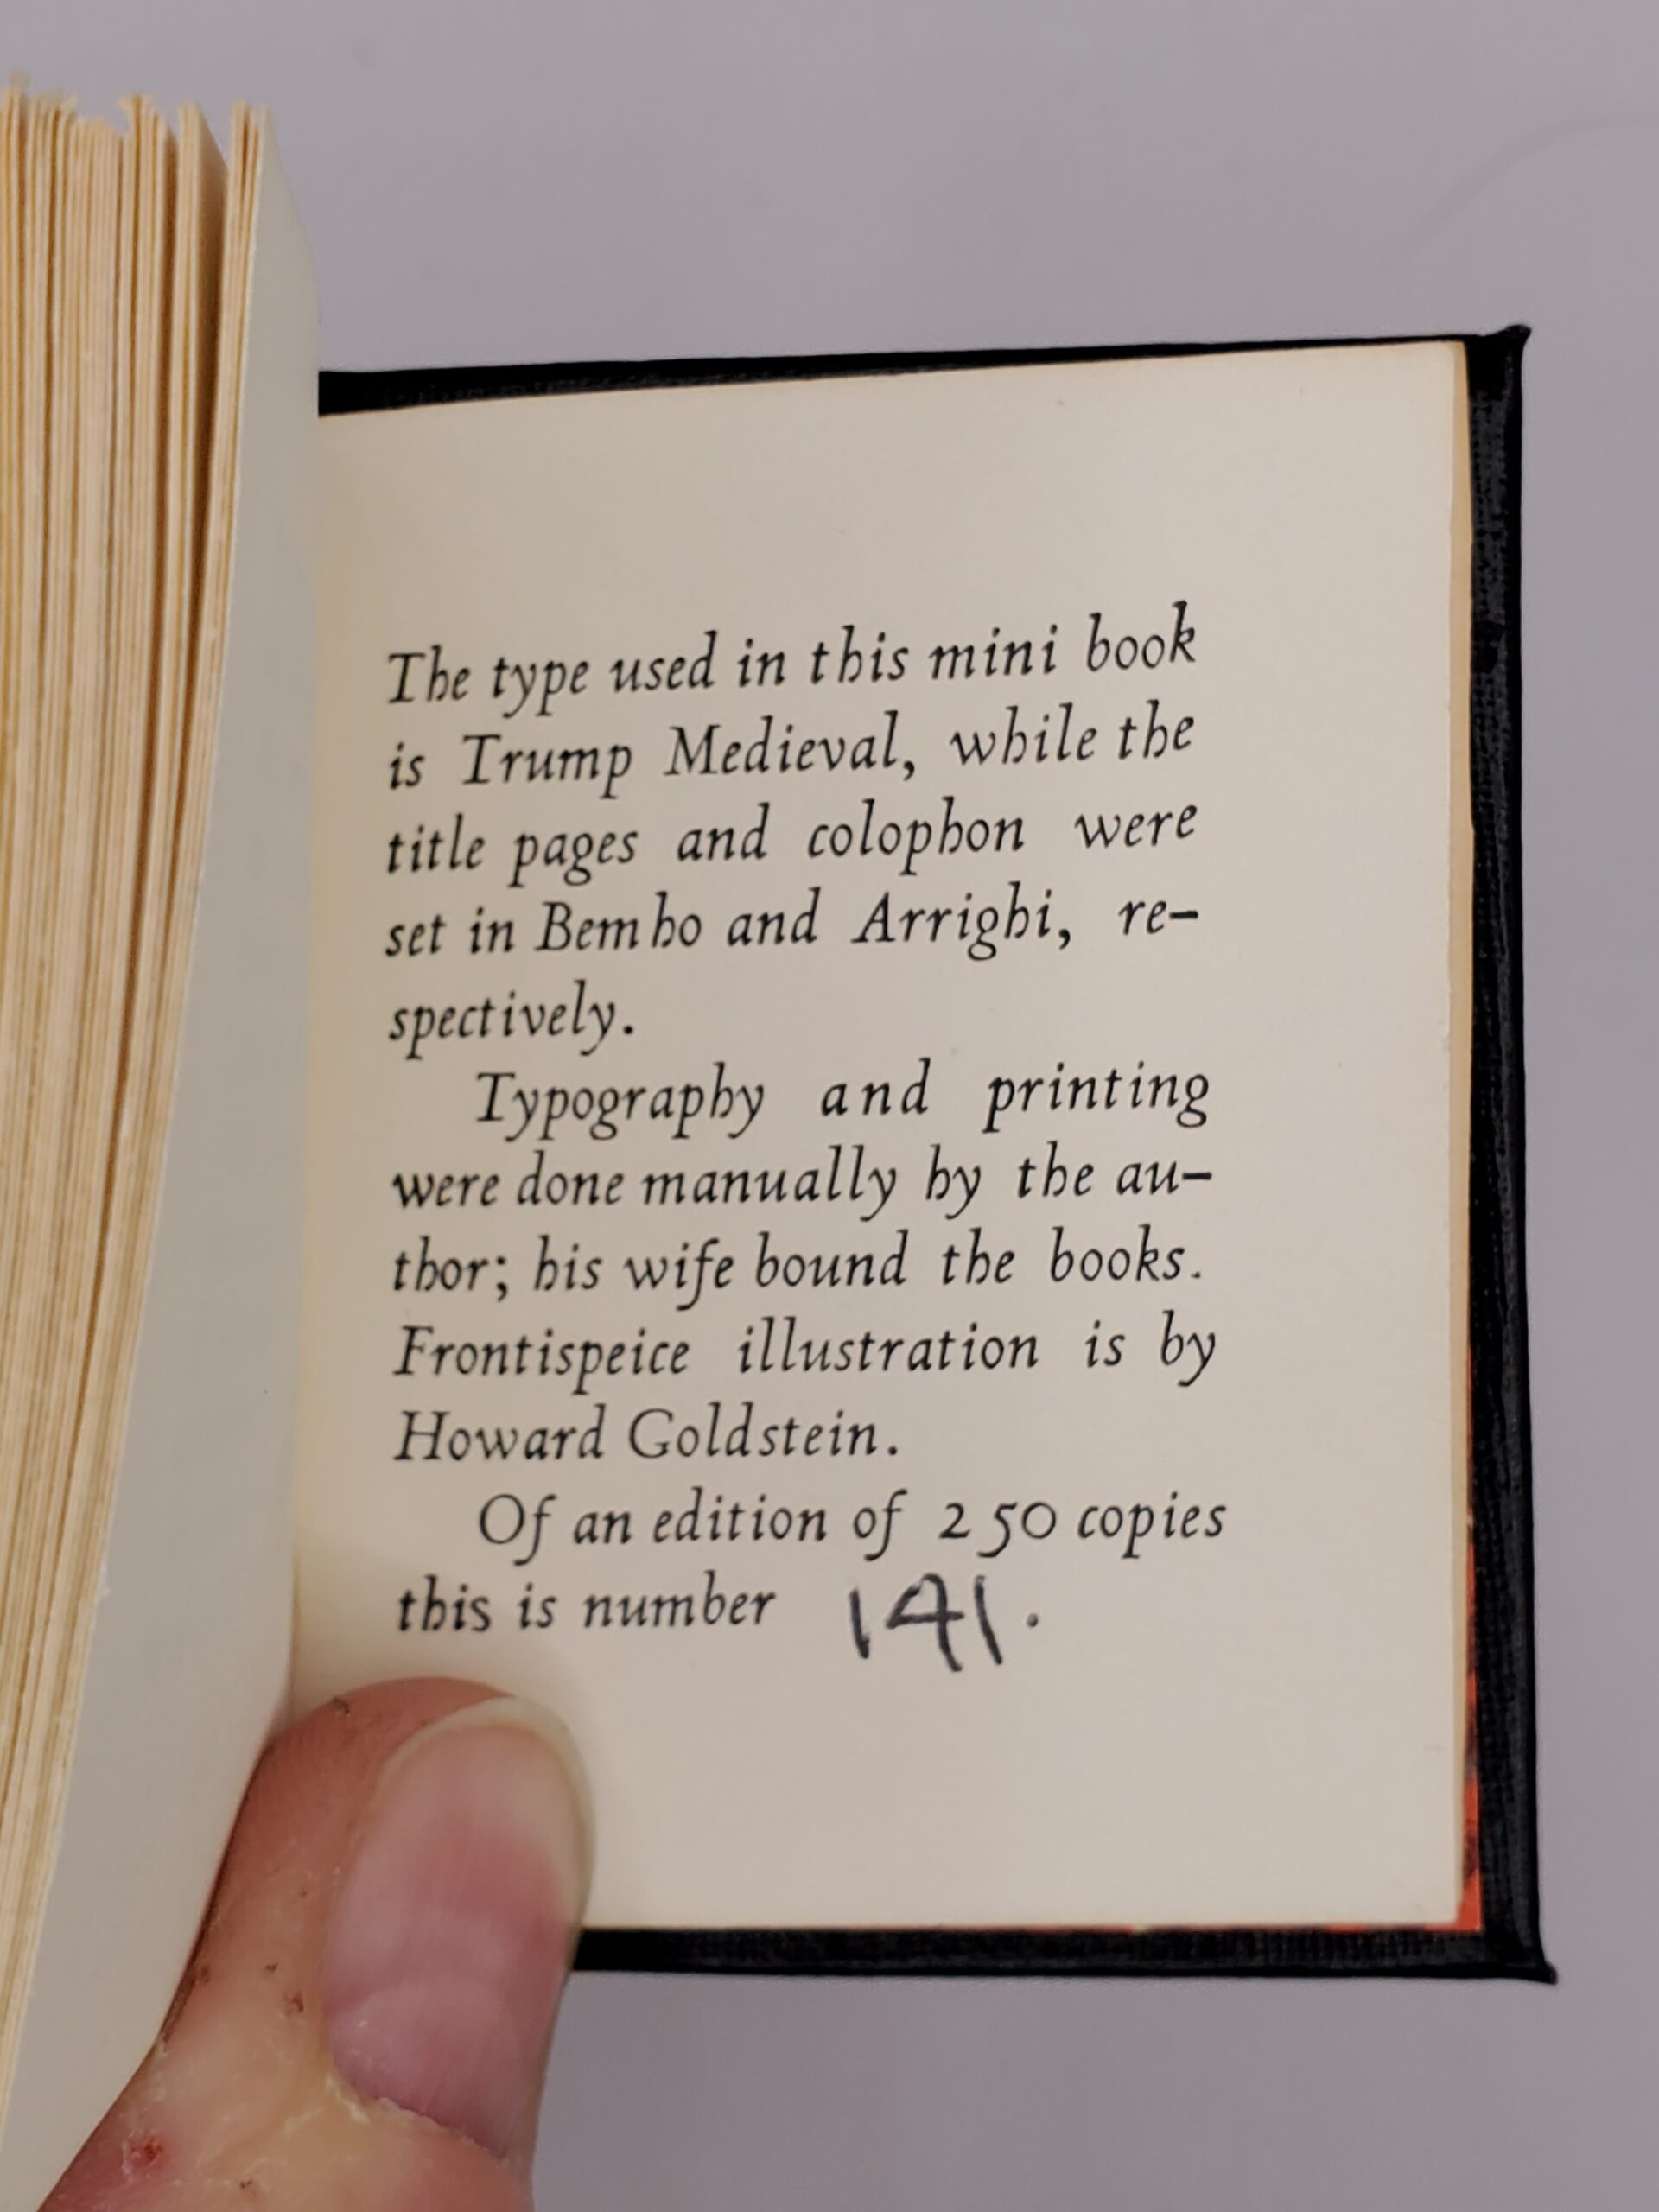 The type used in this mini book
is Trump Medieval, while the
title pages and colophon were
set in Bembo and Arrighi, re-
spectively.
Typography and printing
were done manually by the au-
thor; his wife bound the books.
Frontispeice illustration is by
Howard Goldstein.
Of an edition of 250 copies
this is number 141.